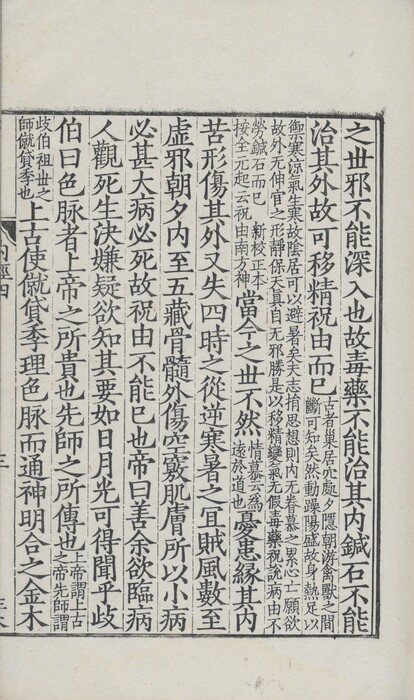 之世邪不能深入也故毒藥不能治其内鍼石不能
治其外故可移精祝由而已古者巢居穴處夕隱朝游禽獸之間
斷可知矣然動躁陽盛故身熱足以
禦寒涼氣生寒故陰居可以避暑矣夫志捐思想則内无眷慕之累心亡願欲
故外无伸宦之形靜保天真自无邪勝是以移精變氣无假毒藥祝説病由不
勞鍼石而已 新校正本
按全元起云祝由南方神當今之世不然情慕云爲
遠於道也憂患緣其内
苦形傷其外又失四時之從逆寒暑之冝賊風數至
虚邪朝夕内至五藏骨髓外傷空竅肌膚所以小病
必甚大病必死故祝由不能已也帝曰善余欲臨病
人觀死生決嫌疑欲知其要如日月光可得聞乎歧
伯曰色脉者上帝之所貴也先師之所傳也上帝謂上古
之帝先師謂
歧伯祖丗之
師僦貸季也上古使僦貸季理色脉而通神明合之金木